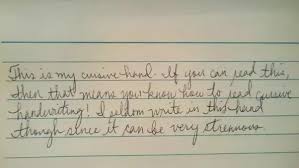 This is my cursive hand. If you can read this,
then that means you know how to read cursive
handwriting! I seldom write in this hand
though since it can be very strenuous.